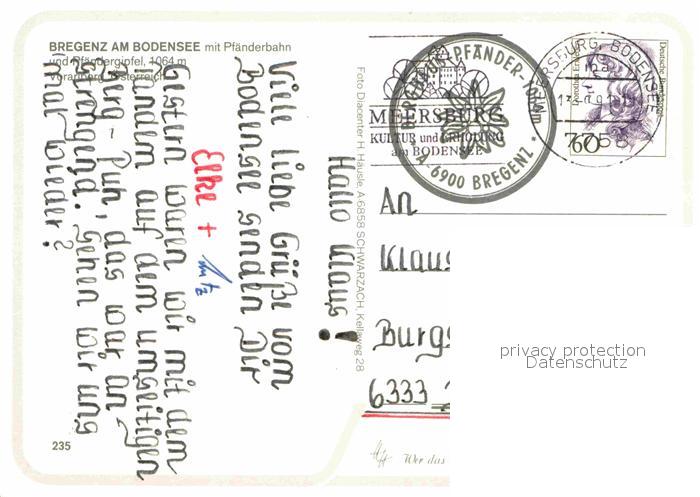 BREGENZ AM BODENSEE mit Pfänderbahn
und Pfändergipfel, 1064 m
Vorarlberg, Österreich
Hallo Klaus!
Viele liebe Grüße vom
Bodensee senden Dir
Elke + Lutz
Gestern waren wir mit dem
Tandem auf dem umseitigen
Berg - Puh, das war an-
strengend. Sehen wir uns
mal wieder?
235
Foto Diacenter H. Häusle, A-6858 SCHWARZACH, Kellaweg 28
MEERSBURG
KULTUR und ERHOLUNG
am BODENSEE
PFÄNDER
A-6900 BREGENZ
MEERSBURG, BODENSEE
7758
60
Deutsche Bundespost
An
Klaus
Burgs
6333
Wer das
privacy protection
Datenschutz